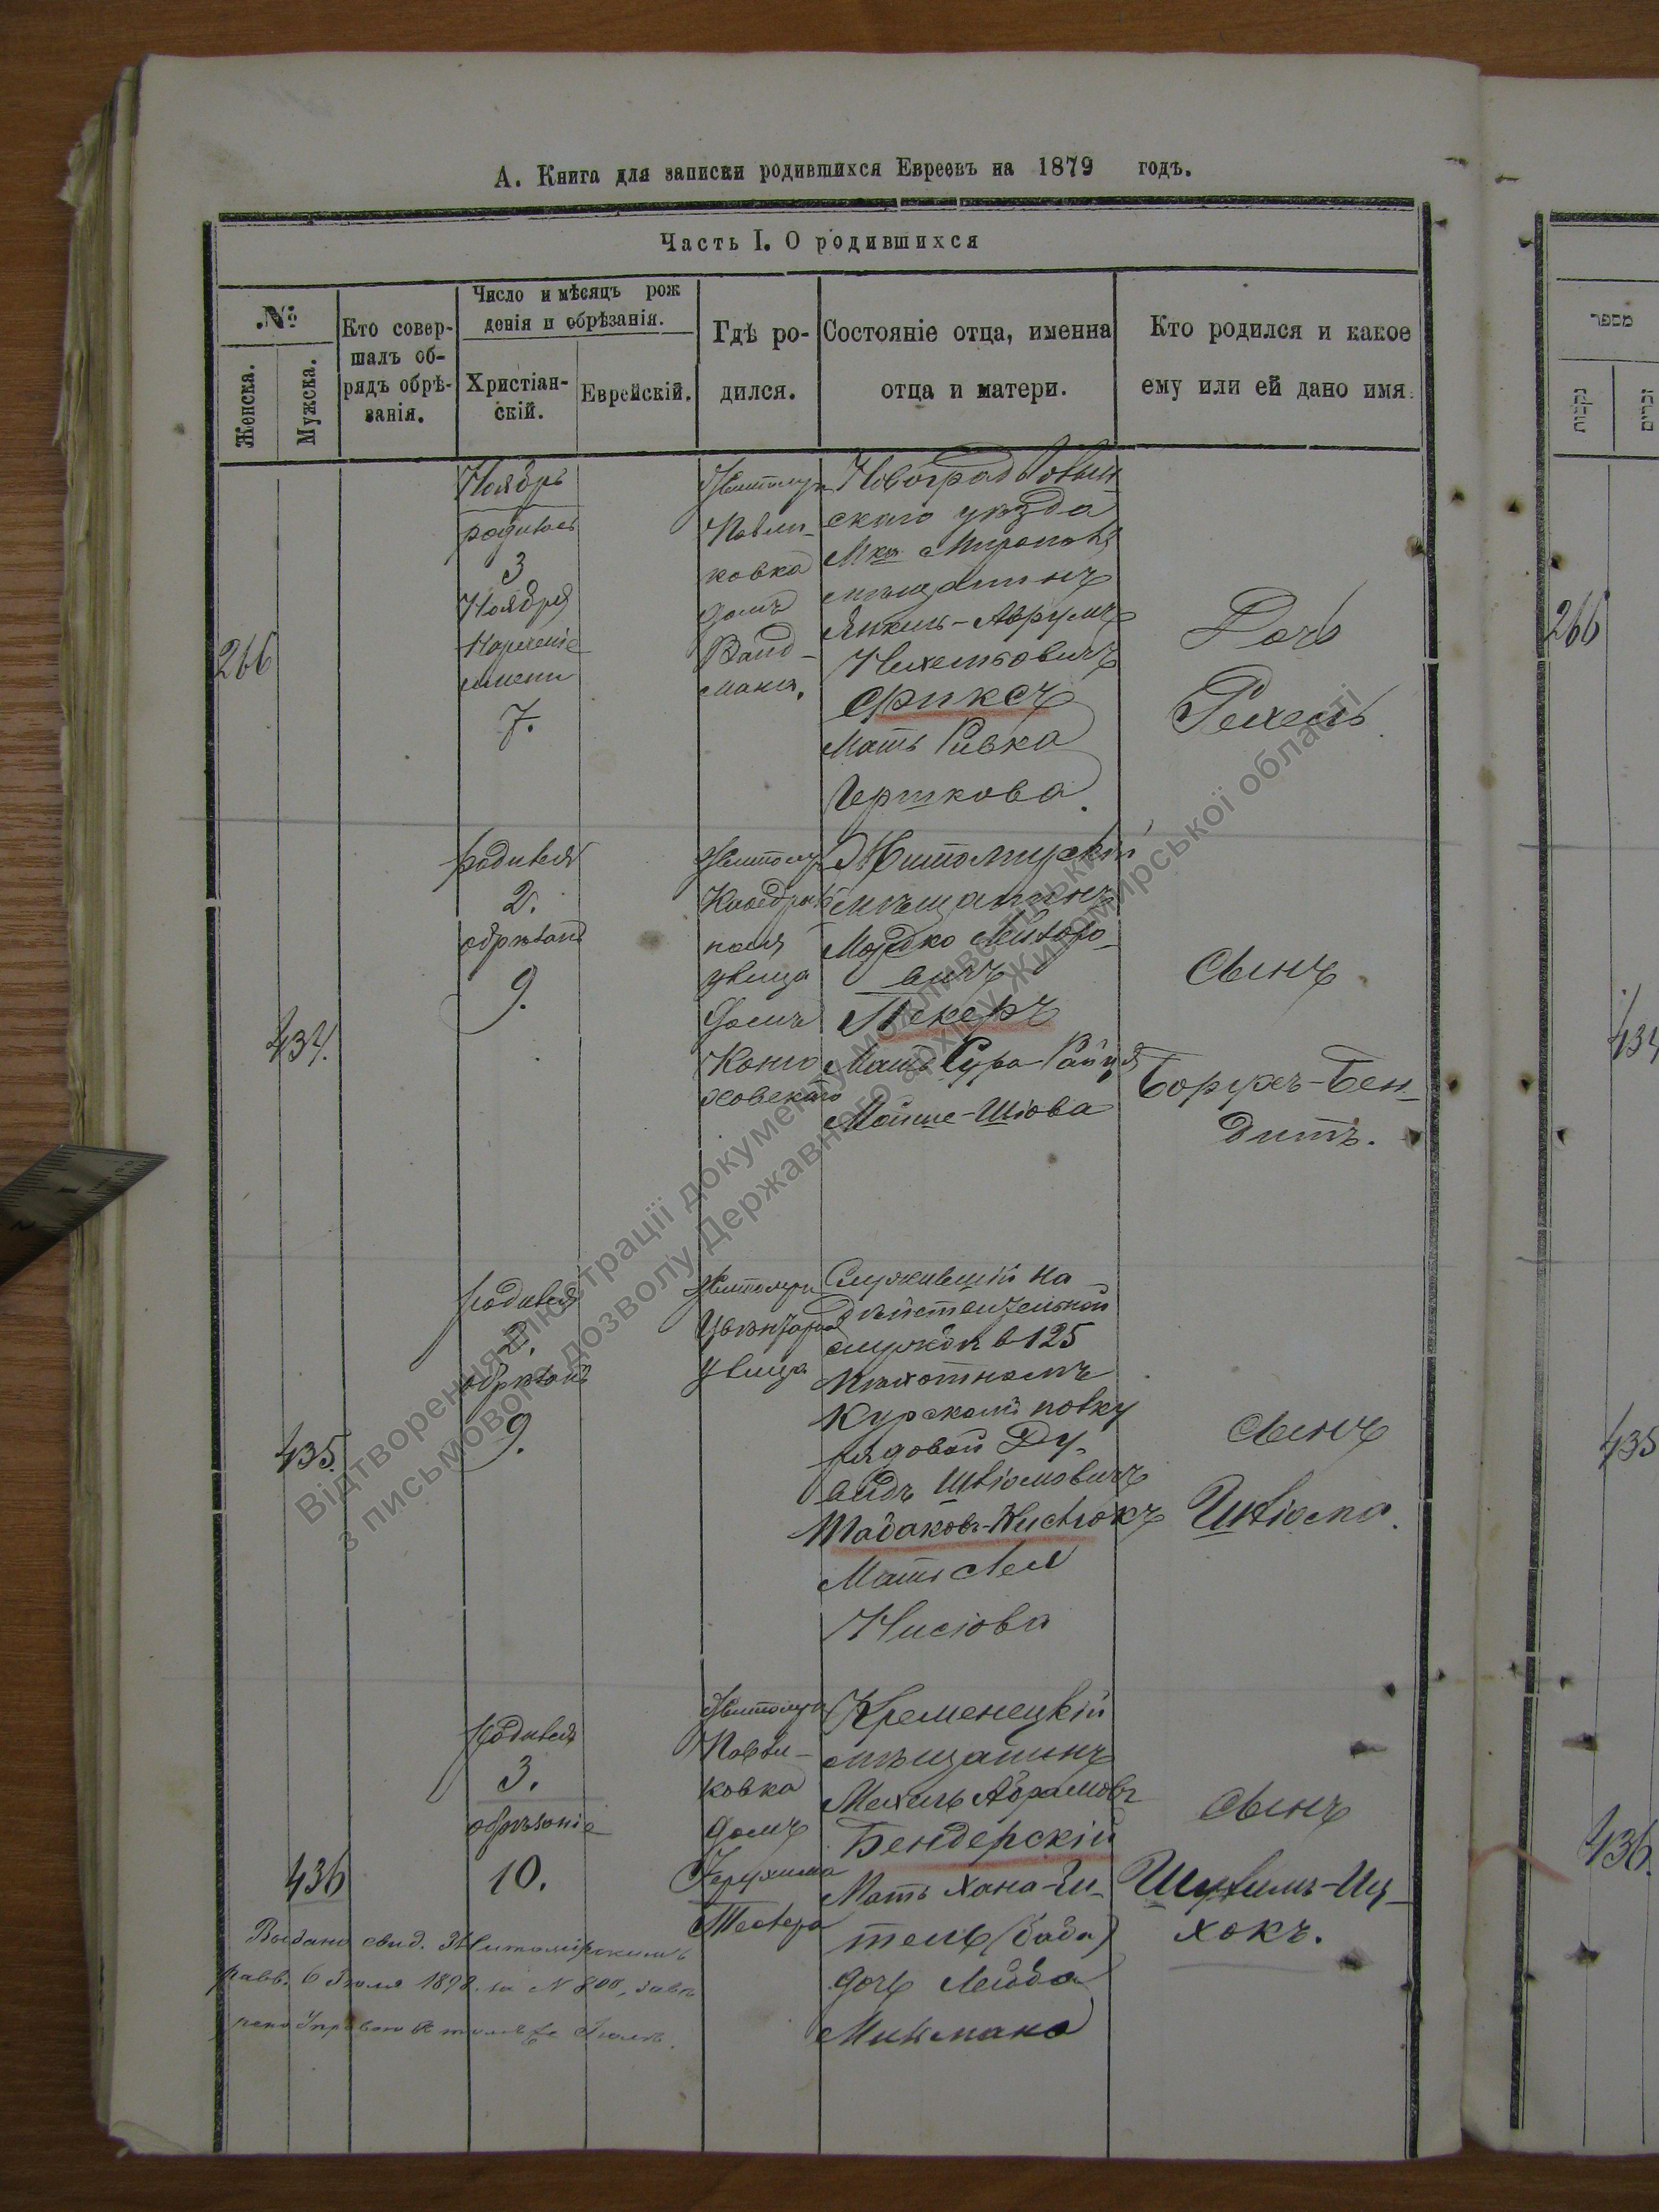 А. Книга для записки родившихся Евреевъ на 1879 годъ.
Часть I. О родившихся
№
Женска.
Мужска.
Кто совер-
шалъ об-
рядъ обрѣ-
занія.
Число и мѣсяцъ рож
денія и обрѣзанія.
Христіан-
скій.
Еврейскій.
Гдѣ ро-
дился.
Состояніе отца, именна
отца и матери.
Кто родился и какое
ему или ей дано имя.
266
Ноябрь
родилась
3
Ноября
нареченіе
имени
7.
Житомиръ
Павли-
ковка
домъ
Вайд-
мана.
Новоградволын-
скаго уѣзда
Мка Мирополя
мѣщанинъ
Янкель-Аврумъ
Фиксъ
Мать Ривка
Гершкова.
Дочь
Рехель
434.
родился
2.
обрѣзанъ
9.
Житомиръ
Кафедраль
ная
улица
домъ
Житомирскій
мѣщанинъ
Мордко
вичъ
Пекеръ
Мать Сура-Райця
Мойше-Шіова
Сынъ
Борухъ-Бен-
дитъ.
435.
родился
2.
обрѣзанъ
9.
Житомиръ
улица
Служившій на
дѣйствительной
службѣ в 125
пѣхотномъ
Курскомъ полку
рядовой Ду-
видъ Шліомовичъ
Мать Лея
Нисіова
Сынъ
Шліома.
436
родился
3.
обрѣзаніе
10.
Житомиръ
Павли-
ковка
домъ
Герухима
Теслера
Кременецкій
мѣщанинъ
Мехель Абрамовъ
Бендерскій
Мать Хана-Ги-
тель (баба)
дочь Лейба
Милмана
Сынъ
Шулимъ-Иц-
хокъ.
Выдано свид. Житомірскимъ
равв. 6 Іюля 1898 за N 800, завѣ
266
434
435
436.
מספר
נקבות
זכרים
Відтворення ілюстрації документу можливо тільки
з письмового дозволу Державного архіву Житомирської області